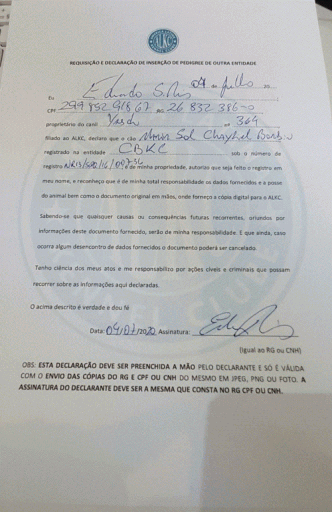 ALKC
REQUISIÇÃO E DECLARAÇÃO DE INSERÇÃO DE PEDIGREE DE OUTRA ENTIDADE
Eu
CPF RG 26 832 386-0
proprietário do canil nº 364
filiado ao ALKC, declaro que o cão Sol
registrado na entidade CBKC sob o número de
registro de minha propriedade, autorizo que seja feito o registro em
meu nome, e reconheço que é de minha total responsabilidade os dados fornecidos e a posse
do animal bem como o documento original em mãos, onde forneço a cópia digital para o ALKC.
Sabendo-se que quaisquer causas ou consequências futuras recorrentes, oriundos por
informações deste documento fornecido, serão de minha responsabilidade. E que ainda, caso
ocorra algum desencontro de dados fornecidos o documento poderá ser cancelado.
Tenho ciência dos meus atos e me responsabilizo por ações cíveis e criminais que possam
recorrer sobre as informações aqui declaradas.
O acima descrito é verdade e dou fé
Data: Assinatura:
(Igual ao RG ou CNH)
OBS: ESTA DECLARAÇÃO DEVE SER PREENCHIDA A MÃO PELO DECLARANTE E SÓ É VÁLIDA
COM O ENVIO DAS CÓPIAS DO RG E CPF OU CNH DO MESMO EM JPEG, PNG OU FOTO. A
ASSINATURA DO DECLARANTE DEVE SER A MESMA QUE CONSTA NO RG CPF OU CNH.